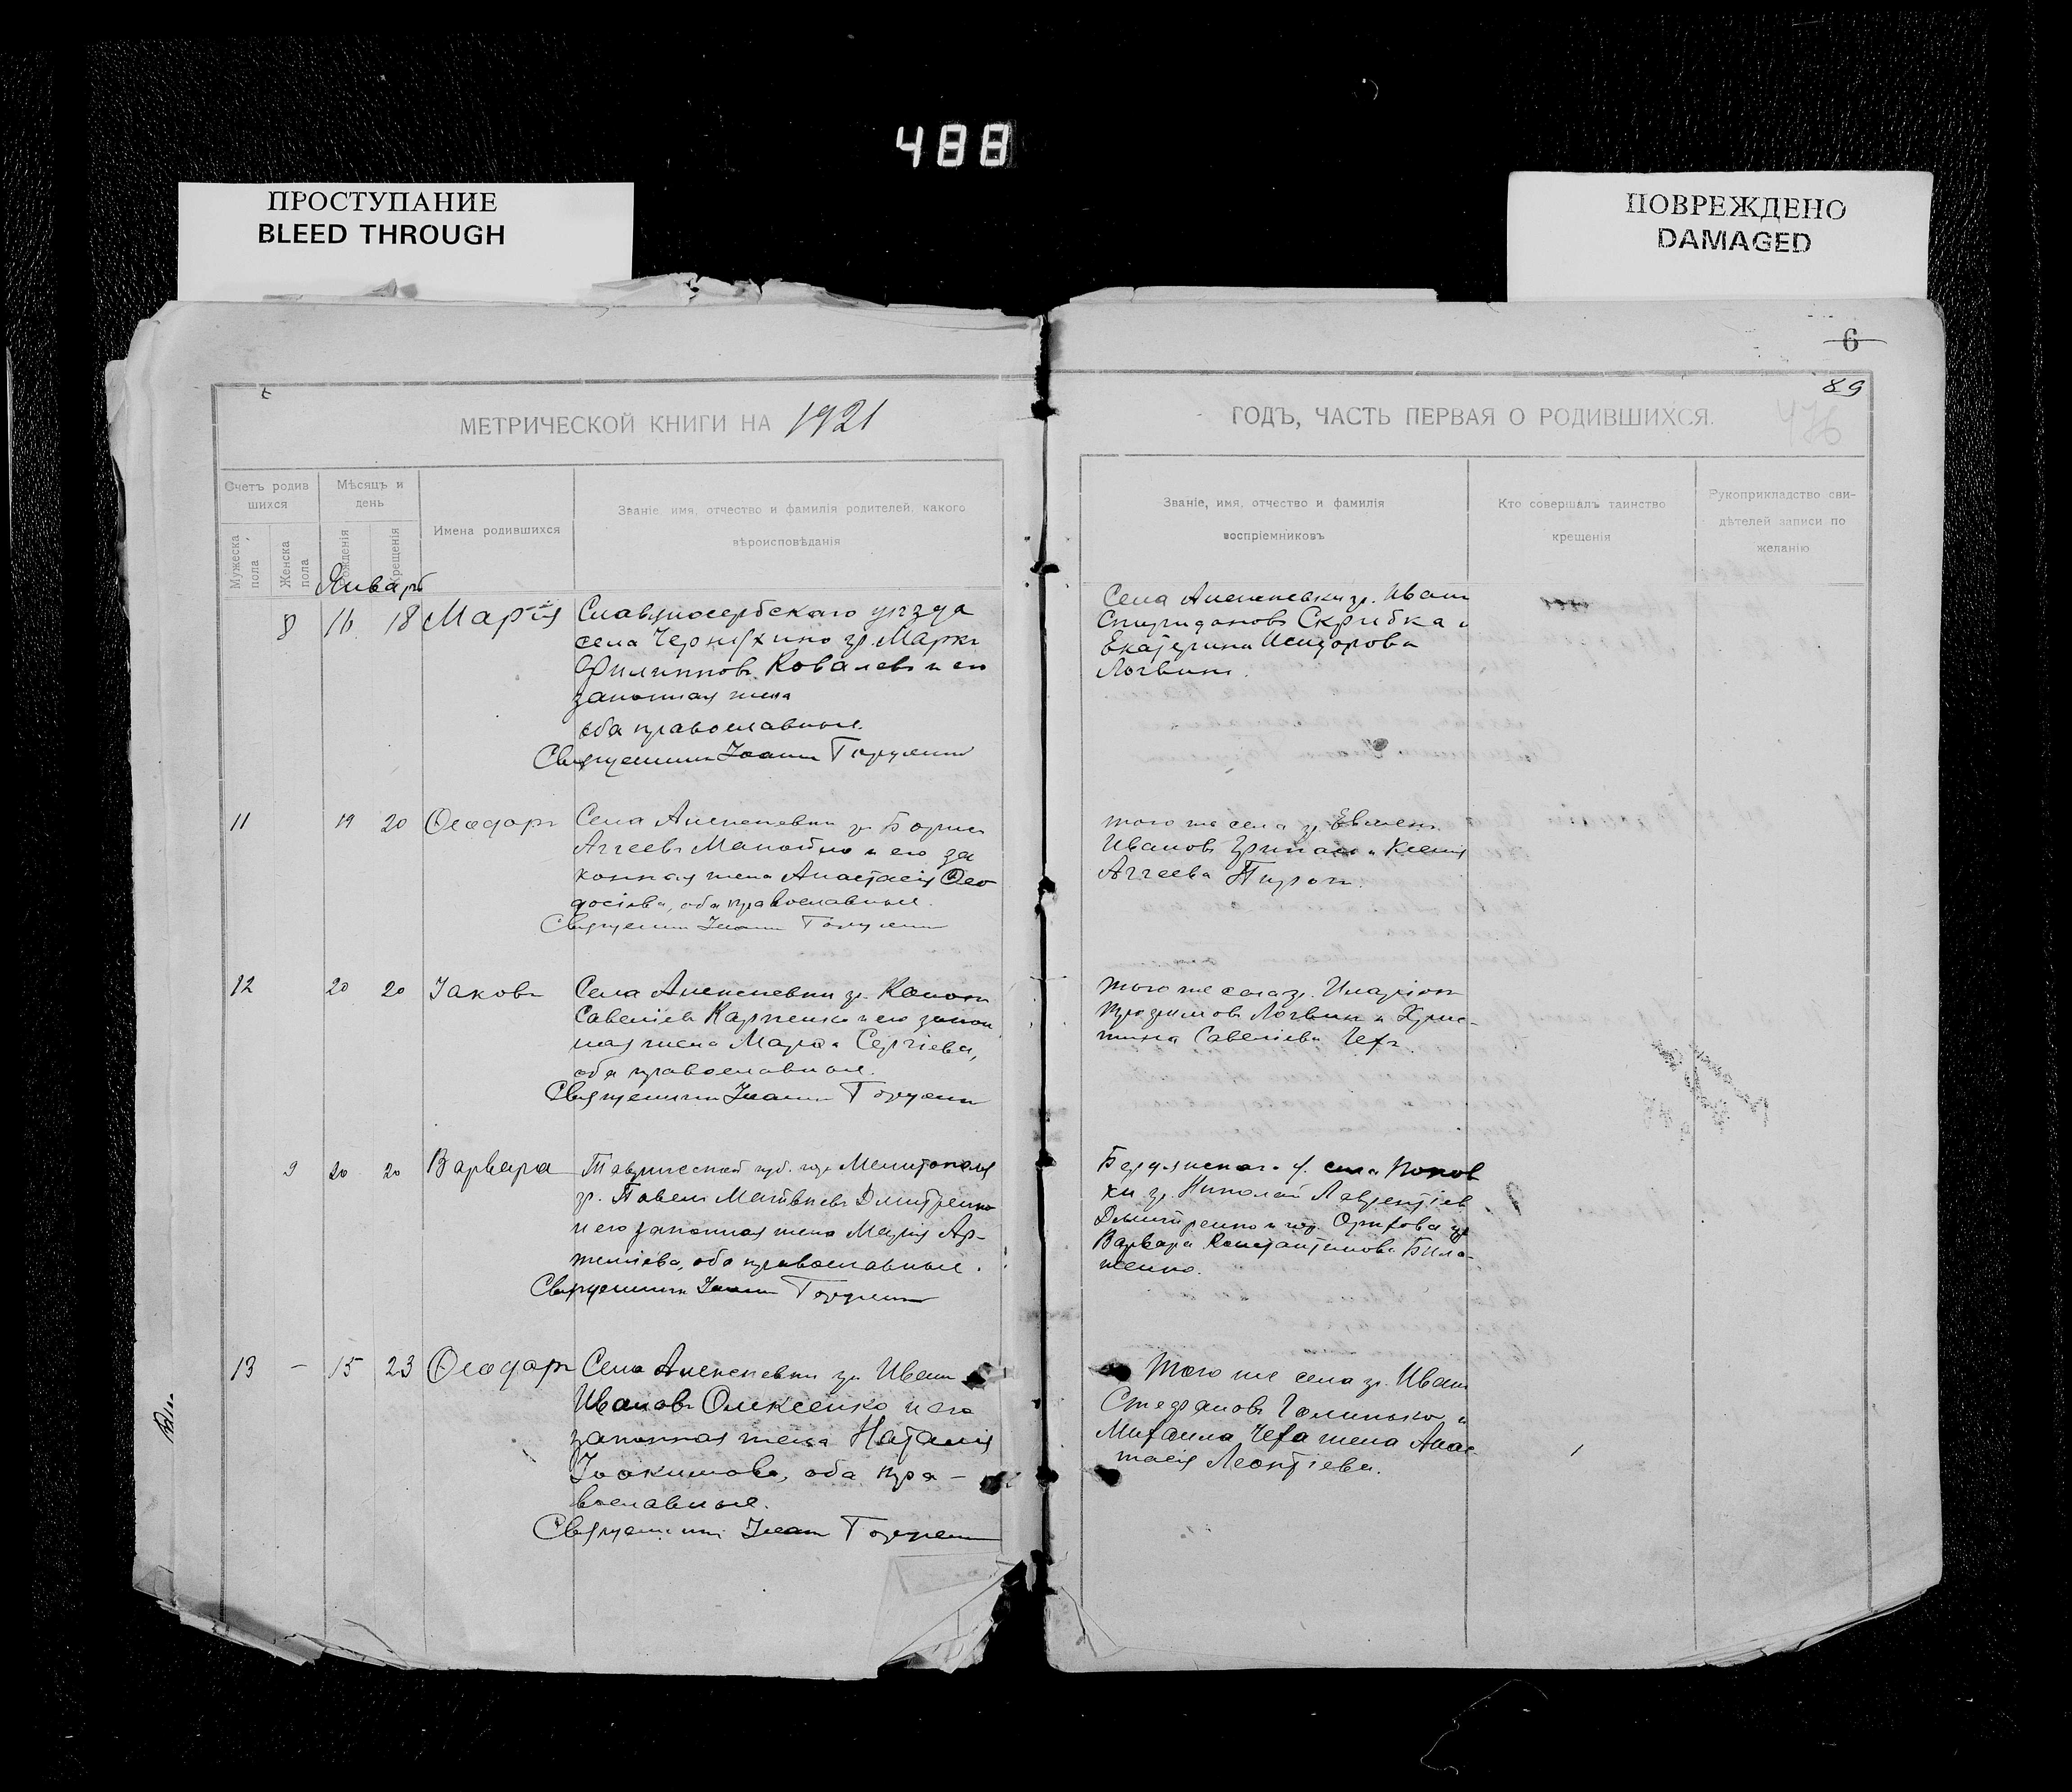 488
ПРОСТУПАНИЕ
BLEED THROUGH
ПОВРЕЖДЕНО
DAMAGED
6
89
476
МЕТРИЧЕСКОЙ КНИГИ НА 1921
ГОДЪ, ЧАСТЬ ПЕРВАЯ О РОДИВШИХСЯ.
Счетъ родив
шихся
Мужеска
пола
Женска
пола
Мѣсяцъ и
день
рожденія
крещенія
Имена родившихся
Званіе, имя, отчество и фамилія родителей, какого
вѣроисповѣданія
Званіе, имя, отчество и фамилія
воспріемниковъ
Кто совершалъ таинство
крещенія
Рукоприкладство сви-
дѣтелей записи по
желанію
Январь
8 16 18 Марія
Славяносербскаго уѣзда
села Чернухино гр. Маркъ
Филипповъ Ковалевъ и его
законная жена
оба православные.
Священникъ Іоаннъ
Села Алексеевки гр. Иванъ
Спиридоновъ Скрибка и
Екатерина Исидорова
Логвинъ.
11 19 20 Ѳеодоръ
Села Алексеевки гр. Борисъ
Аггеевъ Манойло и его за
конная жена Анастасія Ѳео
досіева, оба православные.
Священникъ Іоаннъ
того же села гр. Евменъ
Ивановъ и Ксенія
Аггеева
12 20 20 Іаковъ
Села Алексеевки гр. Кононъ
Савеліевъ Карпенко и его закон
ная жена Марѳа Сергіева,
оба православные.
Священникъ Іоаннъ
того же села гр. Иларіонъ
Трофимовъ Логвинъ и Хрис-
тина Савеліева Чехъ.
9 20 20 Варвара
Таврической губ. гор. Мелитополя
гр. Павелъ Матвѣевъ Дмитренко
и его законная жена Марія Ар-
теміева, оба православные.
Священникъ Іоаннъ
Бердянскаго у. села Попов
ки гр. Николай Лаврентіев
Дмитренко и гор. Орѣхова гр
Варвара Константинова Била-
шенко.
13 - 15 23 Ѳеодоръ
Села Алексеевки гр. Иванъ
Ивановъ Олексенко и его
законная жена Наталія
Іоакимова, оба пра-
вославные.
Священникъ Іоаннъ
Того же села гр. Иванъ
Стефановъ и
Михаила Чеха жена Анас
тасія Леонтіева.